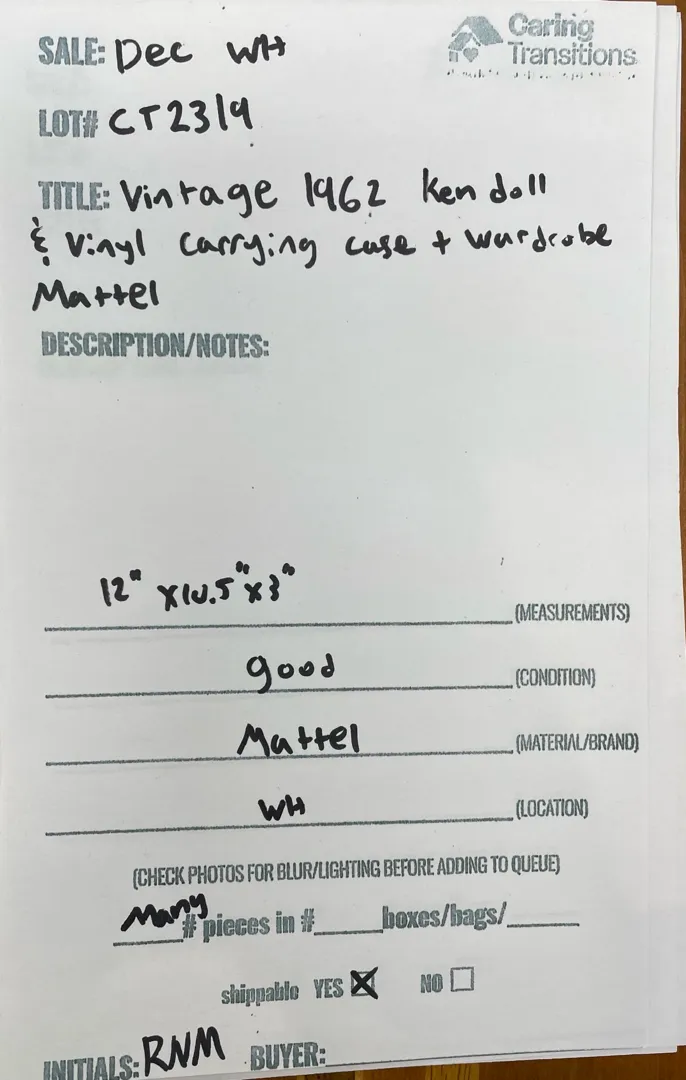 Caring
Transitions
SALE: Dec WH
LOT# CT2319
TITLE: Vintage 1962 Ken doll
& Vinyl Carrying case + wardrobe
Mattel
DESCRIPTION/NOTES:
12" x10.5"x3" (MEASUREMENTS)
good (CONDITION)
Mattel (MATERIAL/BRAND)
WH (LOCATION)
(CHECK PHOTOS FOR BLUR/LIGHTING BEFORE ADDING TO QUEUE)
Many # pieces in #_____boxes/bags/_____
shippable YES NO
INITIALS: RNM BUYER: